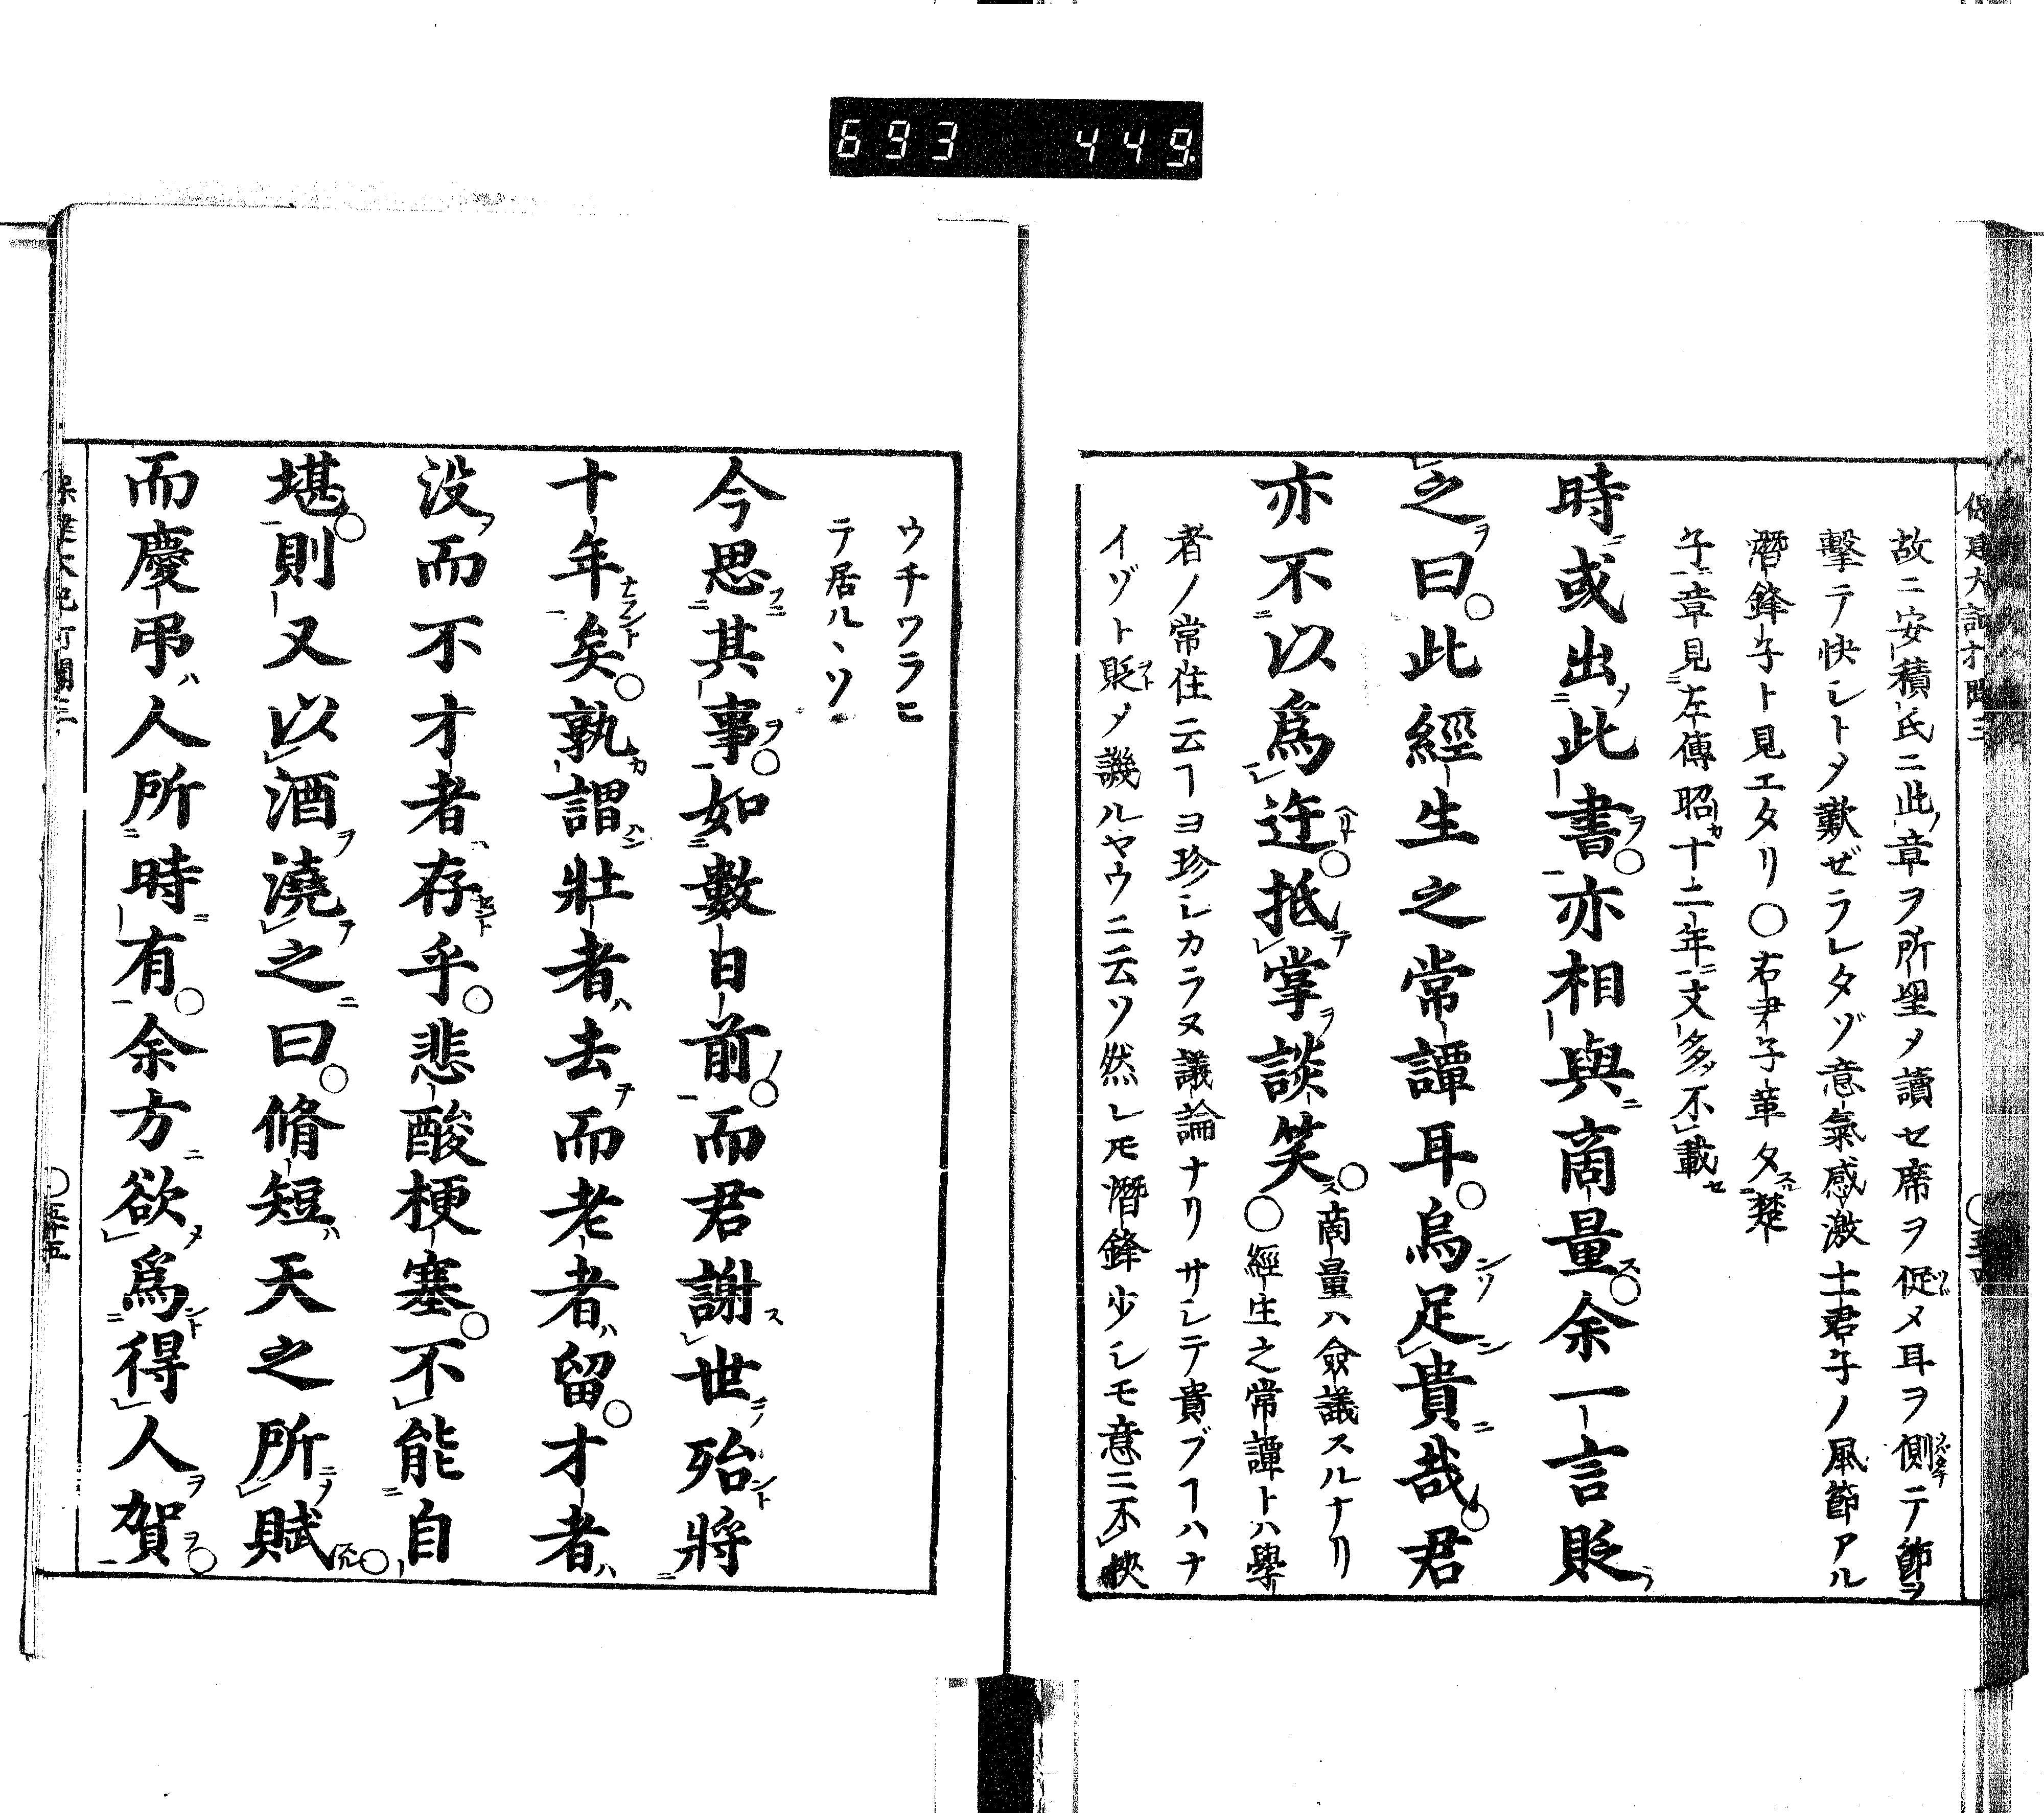 693 449
故ニ安積氏ニ此章ヲ所望〆讀セ席ヲ促メ耳ヲ側テ節ヲ
擊テ快シト〆歎ゼラレタゾ意氣感激士君子ノ風節アル
潛鋒子ト見エタリ〇右尹子革夕楚
子章見左傳昭十二年文多不載
時或出此書亦相與商量余一言貶
之曰此經生之常譚耳烏足貴哉君
亦不以爲迕抵掌談笑
商量ハ僉議スルナリ
〇經生之常譚トハ學
者ノ常住云ヿヨ珍シカラヌ議論ナリサシテ貴ブヿハナ
イゾト貶〆譏ルヤウニ云ソ然レ𪜈潛鋒少シモ意ニ不挾
ウチワラヒ
テ居ルヽソ
今思其事如數日前而君謝世殆將
十年矣孰謂壯者去而老者留才者
没而不才者存乎悲酸梗塞不能自
堪則又以酒澆之曰脩短天之所賦
而慶弔人所時有余方欲爲得人賀
〇五十五